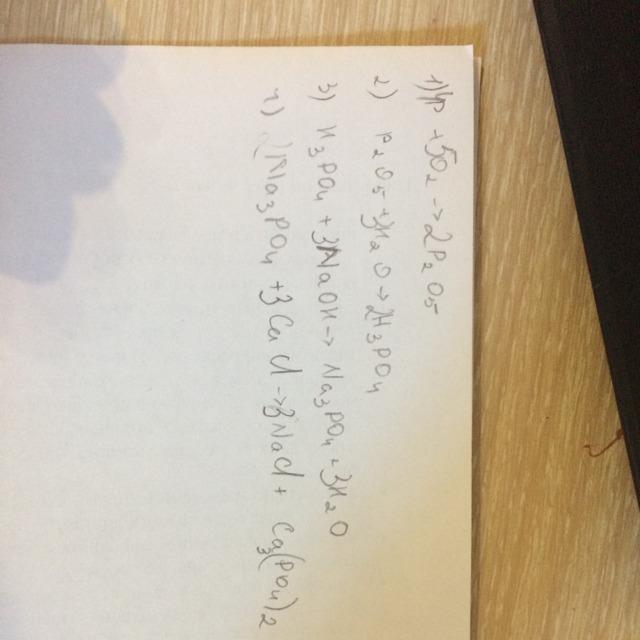 1) 4P + 5O₂ → 2P₂O₅
2) P₂O₅ + 3H₂O → 2H₃PO₄
3) H₃PO₄ + 3NaOH → Na₃PO₄ + 3H₂O
4) 2Na₃PO₄ + 3CaCl → 6NaCl + Ca₃(PO₄)₂